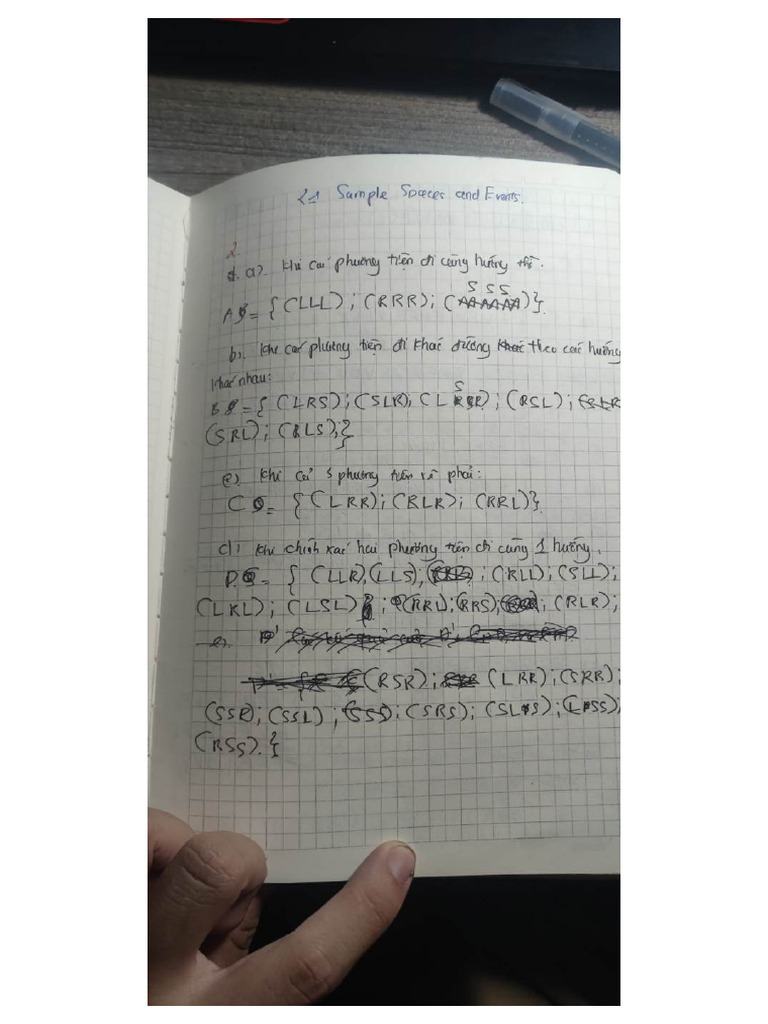 2.1 Sample Spaces and Events.
2.
a). Khi các phương tiện đi cùng hướng
A = { (LLL); (RRR); (SSS)}.
b). Khi các phương tiện đi khác đường theo các hướng
khác nhau:
B = { (LRS); (SLR); (LSR); (RSL);
(SRL); (RLS);}
c). Khi có phương tiện rẽ phải:
C = { (LRR); (RLR); (RRL)}
d). Khi chính xác hai phương tiện đi cùng 1 hướng.
D = { (LLR), (LLS), ; (RLL); (SLL);
(LRL); (LSL) ; (RRL); (RRS); ; (RLR);
(RSR); (LRR); (SRR);
(SSR); (SSL) ; (SRS); (SLS); (LSS);
(RSS).}